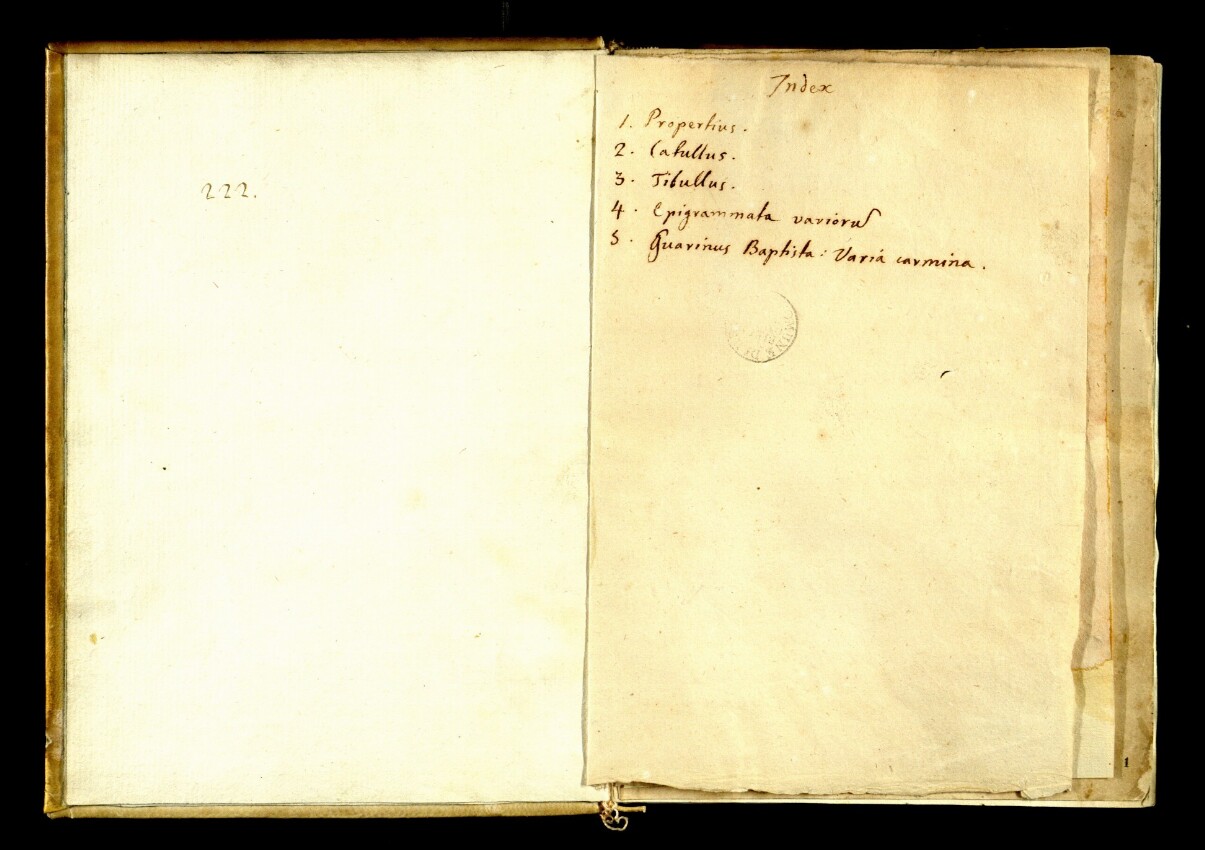 222.
Index
1. Propertius.
2. Catullus.
3. Tibullus.
4. Epigrammata variorũ
5. Guarinus Baptista: Varia carmina.
1